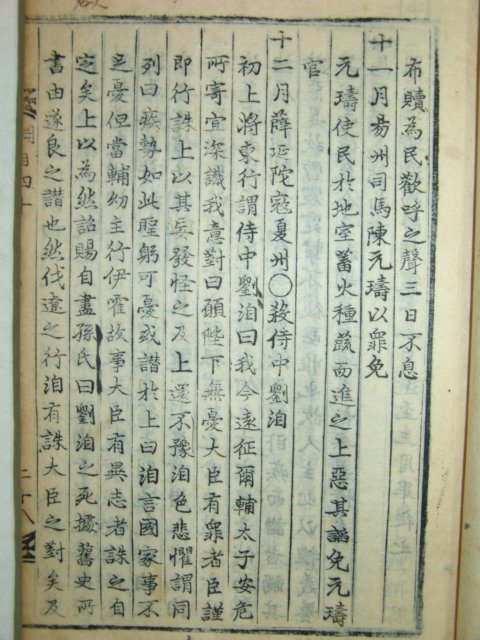 布贖為民歡呼之聲三日不息
十一月易州司馬陳元璹以罪免
元璹使民於地室蓄火種蔬而進之上惡其謟免元璹
官
十二月薛延陀寇夏州〇殺侍中劉洎
初上將東行謂侍中劉洎曰我今遠征爾輔太子安危
所寄宜深識我意對曰願陛下無憂大臣有罪者臣謹
即行誅上以其妄發怪之及上還不豫洎色悲懼謂同
列曰疾勢如此聖躬可憂或譖於上曰洎言國家事不
足憂但當輔幼主行伊霍故事大臣有異志者誅之自
定矣上以為然詔賜自盡孫氏曰劉洎之死據舊史所
書由遂良之譖也然伐遼之行洎有誅大臣之對矣及
綱目四十
二十八